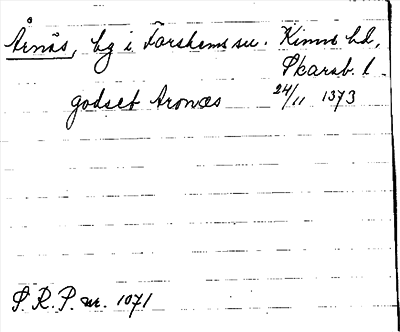 Årnäs, by i Forshems sn. Kinne hd,
Skarab. l
godset Aronæs 24/11 1373
S. R. P. nr. 1071